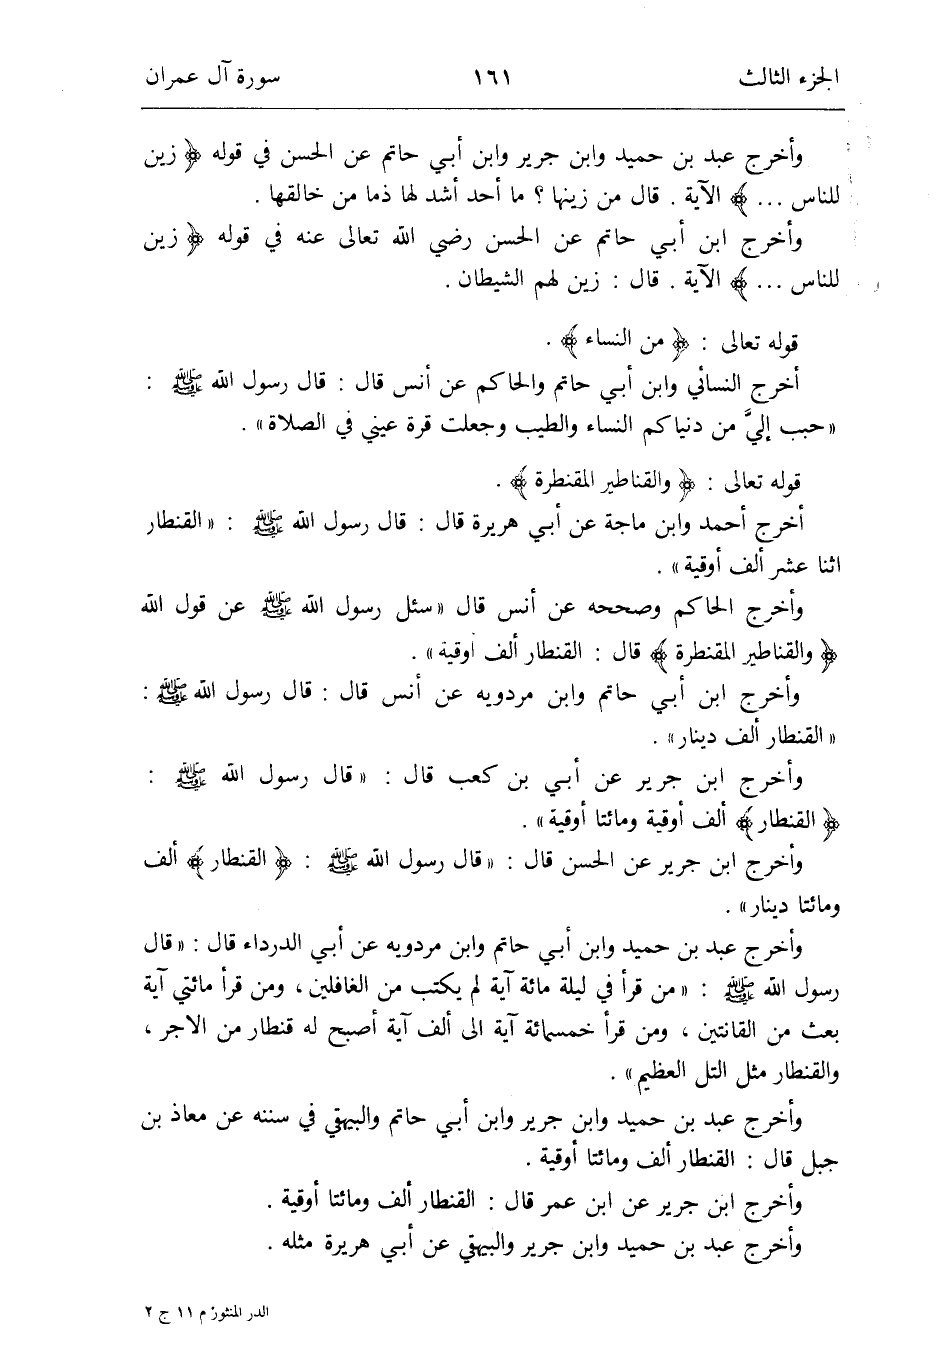 الجزء الثالث ١٦١ سورة آل عمران
وأخرج عبد بن حميد وابن جرير وابن أبي حاتم عن الحسن في قوله ﴿ زين
للناس ... ﴾ الآية . قال من زينها ؟ ما أحد أشد لها ذما من خالقها .
وأخرج ابن أبي حاتم عن الحسن رضي الله تعالى عنه في قوله ﴿ زين
للناس ... ﴾ الآية . قال : زين لهم الشيطان .
قوله تعالى : ﴿ من النساء ﴾ .
أخرج النسائي وابن أبي حاتم والحاكم عن أنس قال : قال رسول الله ﷺ :
« حبب إليَّ من دنياكم النساء والطيب وجعلت قرة عيني في الصلاة» .
قوله تعالى : ﴿ والقناطير المقنطرة ﴾ .
أخرج أحمد وابن ماجة عن أبي هريرة قال : قال رسول الله ﷺ : « القنطار
اثنا عشر ألف أوقية» .
وأخرج الحاكم وصححه عن أنس قال « سئل رسول الله ﷺ عن قول الله
﴿ والقناطير المقنطرة ﴾ قال : القنطار ألف أوقية» .
وأخرج ابن أبي حاتم وابن مردويه عن أنس قال : قال رسول الله ﷺ :
« القنطار ألف دينار» .
وأخرج ابن جرير عن أبي بن كعب قال : « قال رسول الله ﷺ :
﴿ القنطار ﴾ ألف أوقية ومائتا أوقية» .
وأخرج ابن جرير عن الحسن قال : « قال رسول الله ﷺ : ﴿ القنطار ﴾ ألف
ومائتا دينار» .
وأخرج عبد بن حميد وابن أبي حاتم وابن مردويه عن أبي الدرداء قال : « قال
رسول الله ﷺ : « من قرأ في ليلة مائة آية لم يكتب من الغافلين ، ومن قرأ مائتي آية
بعث من القانتين ، ومن قرأ خمسمائة آية الى ألف آية أصبح له قنطار من الاجر ،
والقنطار مثل التل العظيم» .
وأخرج عبد بن حميد وابن جرير وابن أبي حاتم والبيهقي في سننه عن معاذ بن
جبل قال : القنطار ألف ومائتا أوقية .
وأخرج ابن جرير عن ابن عمر قال : القنطار ألف ومائتا أوقية .
وأخرج عبد بن حميد وابن جرير والبيهقي عن أبي هريرة مثله .
الدر المنثور م ١١ ج ٢